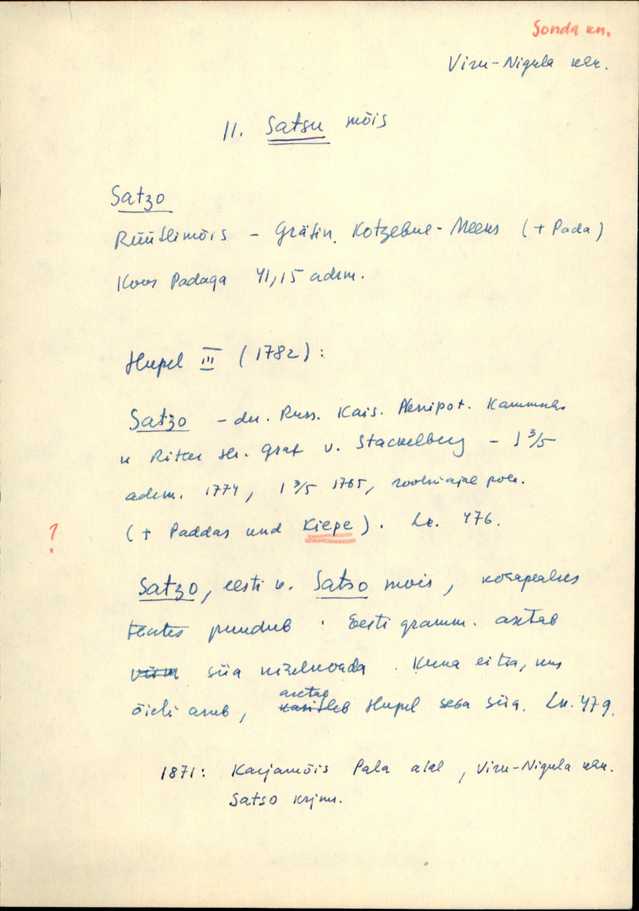 Sonda kn.
Viru-Nigula kk.
11. Satsu mõis
Satzo
Rüütlimõis - Gräfin Kotzebue-Meeks (+ Pada)
Koos Padaga 41,15 adrm.
Hupel III (1782):
Satzo - der Russ. Kais. Plenipot. Kammerh.
u Ritter Hr. Graf v. Stackelberg - 1 3/5
adrm. 1774, 1 3/5 1765, rootsiajal pole.
? (+ Paddas und Kiepe). Lk. 476.
Satzo, eesti k. Satso mois, kohapealses
teates puudub. Eesti gramm. asetab
siia
Kuna ei tea, kus
õieti asub, asetab Hupel seda siia. Lk. 479.
1871: Karjamõis Pada all, Viru-Nigula kk.
Satso krjm.